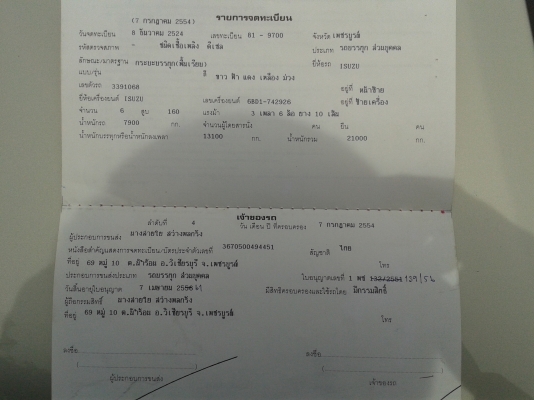 (7 กรกฎาคม 2554) รายการจดทะเบียน
วันจดทะเบียน 8 ธันวาคม 2524 เลขทะเบียน 81 - 9700 จังหวัด เพชรบูรณ์
รหัสตรวจสภาพ - ชนิดเชื้อเพลิง ดีเซล ประเภท รถบรรทุก ส่วนบุคคล
ลักษณะ/มาตรฐาน กระบะบรรทุก(พื้นเรียบ) ยี่ห้อรถ ISUZU
แบบ/รุ่น สี ขาว ฟ้า แดง เหลือง ม่วง
เลขตัวรถ 3391068 อยู่ที่ หน้าซ้าย
ยี่ห้อเครื่องยนต์ ISUZU เลขเครื่องยนต์ 6BD1-742926 อยู่ที่ ซ้ายเครื่อง
จำนวน 6 สูบ 160 แรงม้า 3 เพลา 6 ล้อ ยาง 10 เส้น
น้ำหนักรถ 7900 กก. จำนวนผู้โดยสารนั่ง คน ยืน คน
น้ำหนักบรรทุกหรือน้ำหนักลงเพลา 13100 กก. น้ำหนักรวม 21000 กก.
เจ้าของรถ
ลำดับที่ 4 วัน เดือน ปี ที่ครอบครอง 7 กรกฎาคม 2554
ผู้ประกอบการขนส่ง
หนังสือสำคัญแสดงการจดทะเบียน/บัตรประจำตัวเลขที่ 3670500494451 สัญชาติ ไทย
ที่อยู่ 69 หมู่ 10 อ.วิเชียรบุรี จ.เพชรบูรณ์ โทร
ประกอบการขนส่งประเภท รถบรรทุก ส่วนบุคคล ใบอนุญาตเลขที่ 1 พช 132/2551 139/54
วันสิ้นอายุใบอนุญาต 7 เมษายน 2556 มีสิทธิครอบครองและใช้รถโดย มีกรรมสิทธิ์
ผู้ถือกรรมสิทธิ์
ที่อยู่ 69 หมู่ 10 อ.วิเชียรบุรี จ.เพชรบูรณ์ โทร
ลงชื่อ ลงชื่อ
ผู้ประกอบการขนส่ง เจ้าของรถ